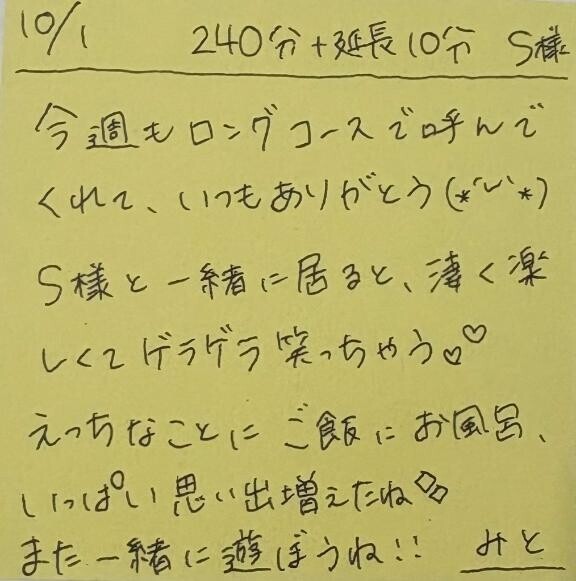 10/1 240分+延長10分 S様
今週もロングコースで呼んで
くれて、いつもありがとう(*´ω`*)
S様と一緒に居ると、凄く楽
しくてゲラゲラ笑っちゃう♡♡
えっちなことにご飯にお風呂、
いっぱい思い出増えたね◇◇
また一緒に遊ぼうね!! みと